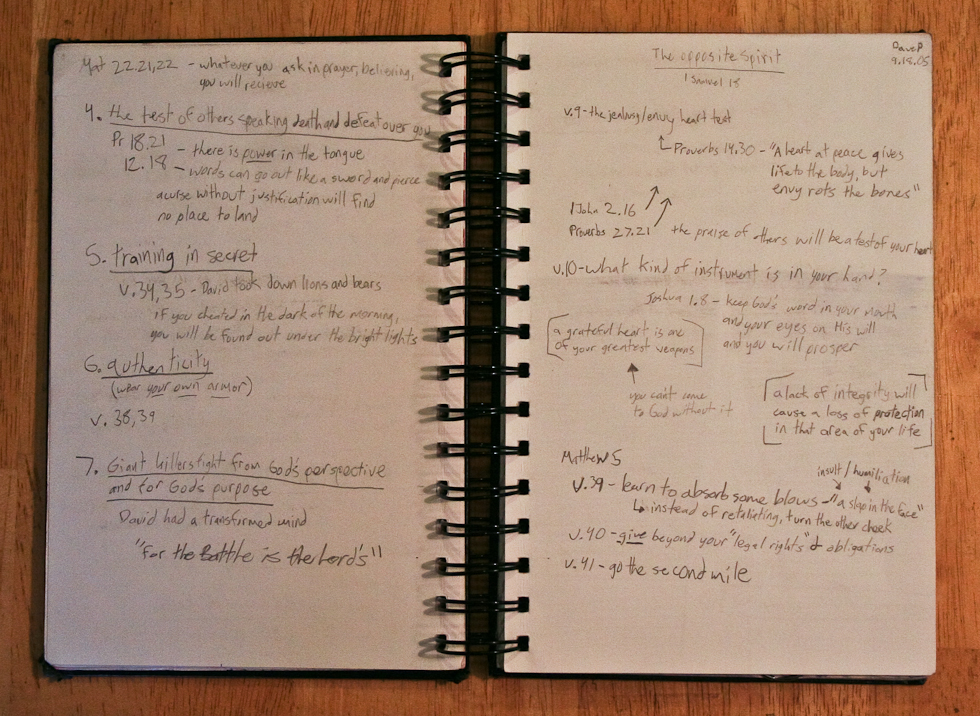 Mat 22.21,22 - whatever you ask in prayer, believing,
you will recieve
4. the test of others speaking death and defeat over you
Pr 18.21 - there is power in the tongue
12.18 - words can go out like a sword and pierce
a curse without justification will find
no place to land
5. training in secret
v.34,35 - David took down lions and bears
if you cheated in the dark of the morning,
you will be found out under the bright lights
6. authenticity
(wear your own armor)
v. 38,39
7. Giant killers fight from God's perspective
and for God's purpose
David had a transformed mind
"For the battle is the Lord's"
Dave P
9.18.05
The opposite Spirit
1 Samuel 18
v.9 - the jealousy/envy heart test
Proverbs 14.30 - "A heart at peace gives
life to the body, but
envy rots the bones"
1 John 2.16
Proverbs 27.21 the praise of others will be a test of your heart
v.10 - what kind of instrument is in your hand?
Joshua 1.8 - keep God's word in your mouth
and your eyes on His will
and you will prosper
a grateful heart is one
of your greatest weapons
you can't come
to God without it
a lack of integrity will
cause a loss of protection
in that area of your life
Matthew 5
insult / humiliation
v.39 - learn to absorb some blows - "a slap in the face"
instead of retaliating, turn the other cheek
v.40 - give beyond your "legal rights" & obligations
v.41 - go the second mile